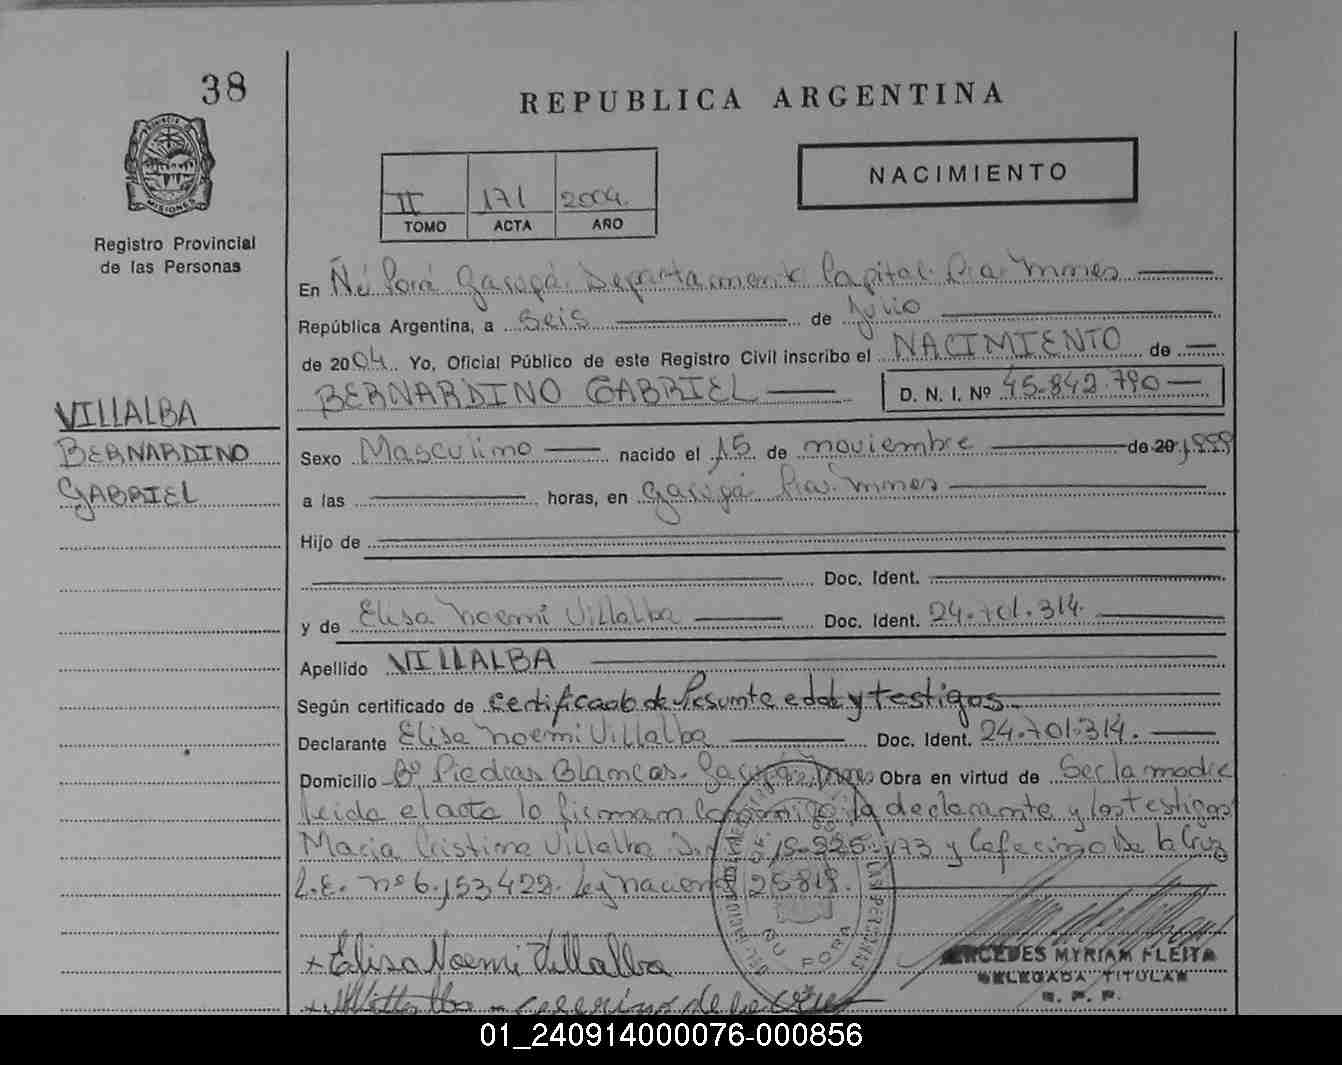 38
REPUBLICA ARGENTINA
PROVINCIA DE
MISIONES
Registro Provincial
de las Personas
II 171 2004.
TOMO ACTA AÑO
NACIMIENTO
En Ñú Porá Garupá. Departamento Capital. Pcia. Mnes
República Argentina, a Seis de Julio
de 2004. Yo, Oficial Público de este Registro Civil inscribo el NACIMIENTO de
BERNARDINO GABRIEL D. N. I. Nº 45.842.790
VILLALBA
BERNARDINO
GABRIEL
Sexo Masculino nacido el 15 de noviembre de 20 1999
a las horas, en Garupá Pcia. Mnes
Hijo de
Doc. Ident.
y de Elisa Noemi Villalba Doc. Ident. 24.701.314.
Apellido VILLALBA
Según certificado de certificado de Presunta edad y testigos.
Declarante Elisa Noemi Villalba Doc. Ident. 24.701.314.
Domicilio Bº Piedras Blancas. Garupá. Mnes Obra en virtud de Ser la madre
leida el acta lo firman conmigo la declarante y los testigos
Maria Cristina Villalba D. 15.925.173 y Ceferino De la Cruz
L.E. nº 6.153.422. Ley nacional 25.819.
ÑU PORA
+ Elisa Noemi Villalba
MERCEDES MYRIAM FLEITA
DELEGADA TITULAR
R. P. P.
+ Villalba - ceferino de la cruz
01_240914000076-000856